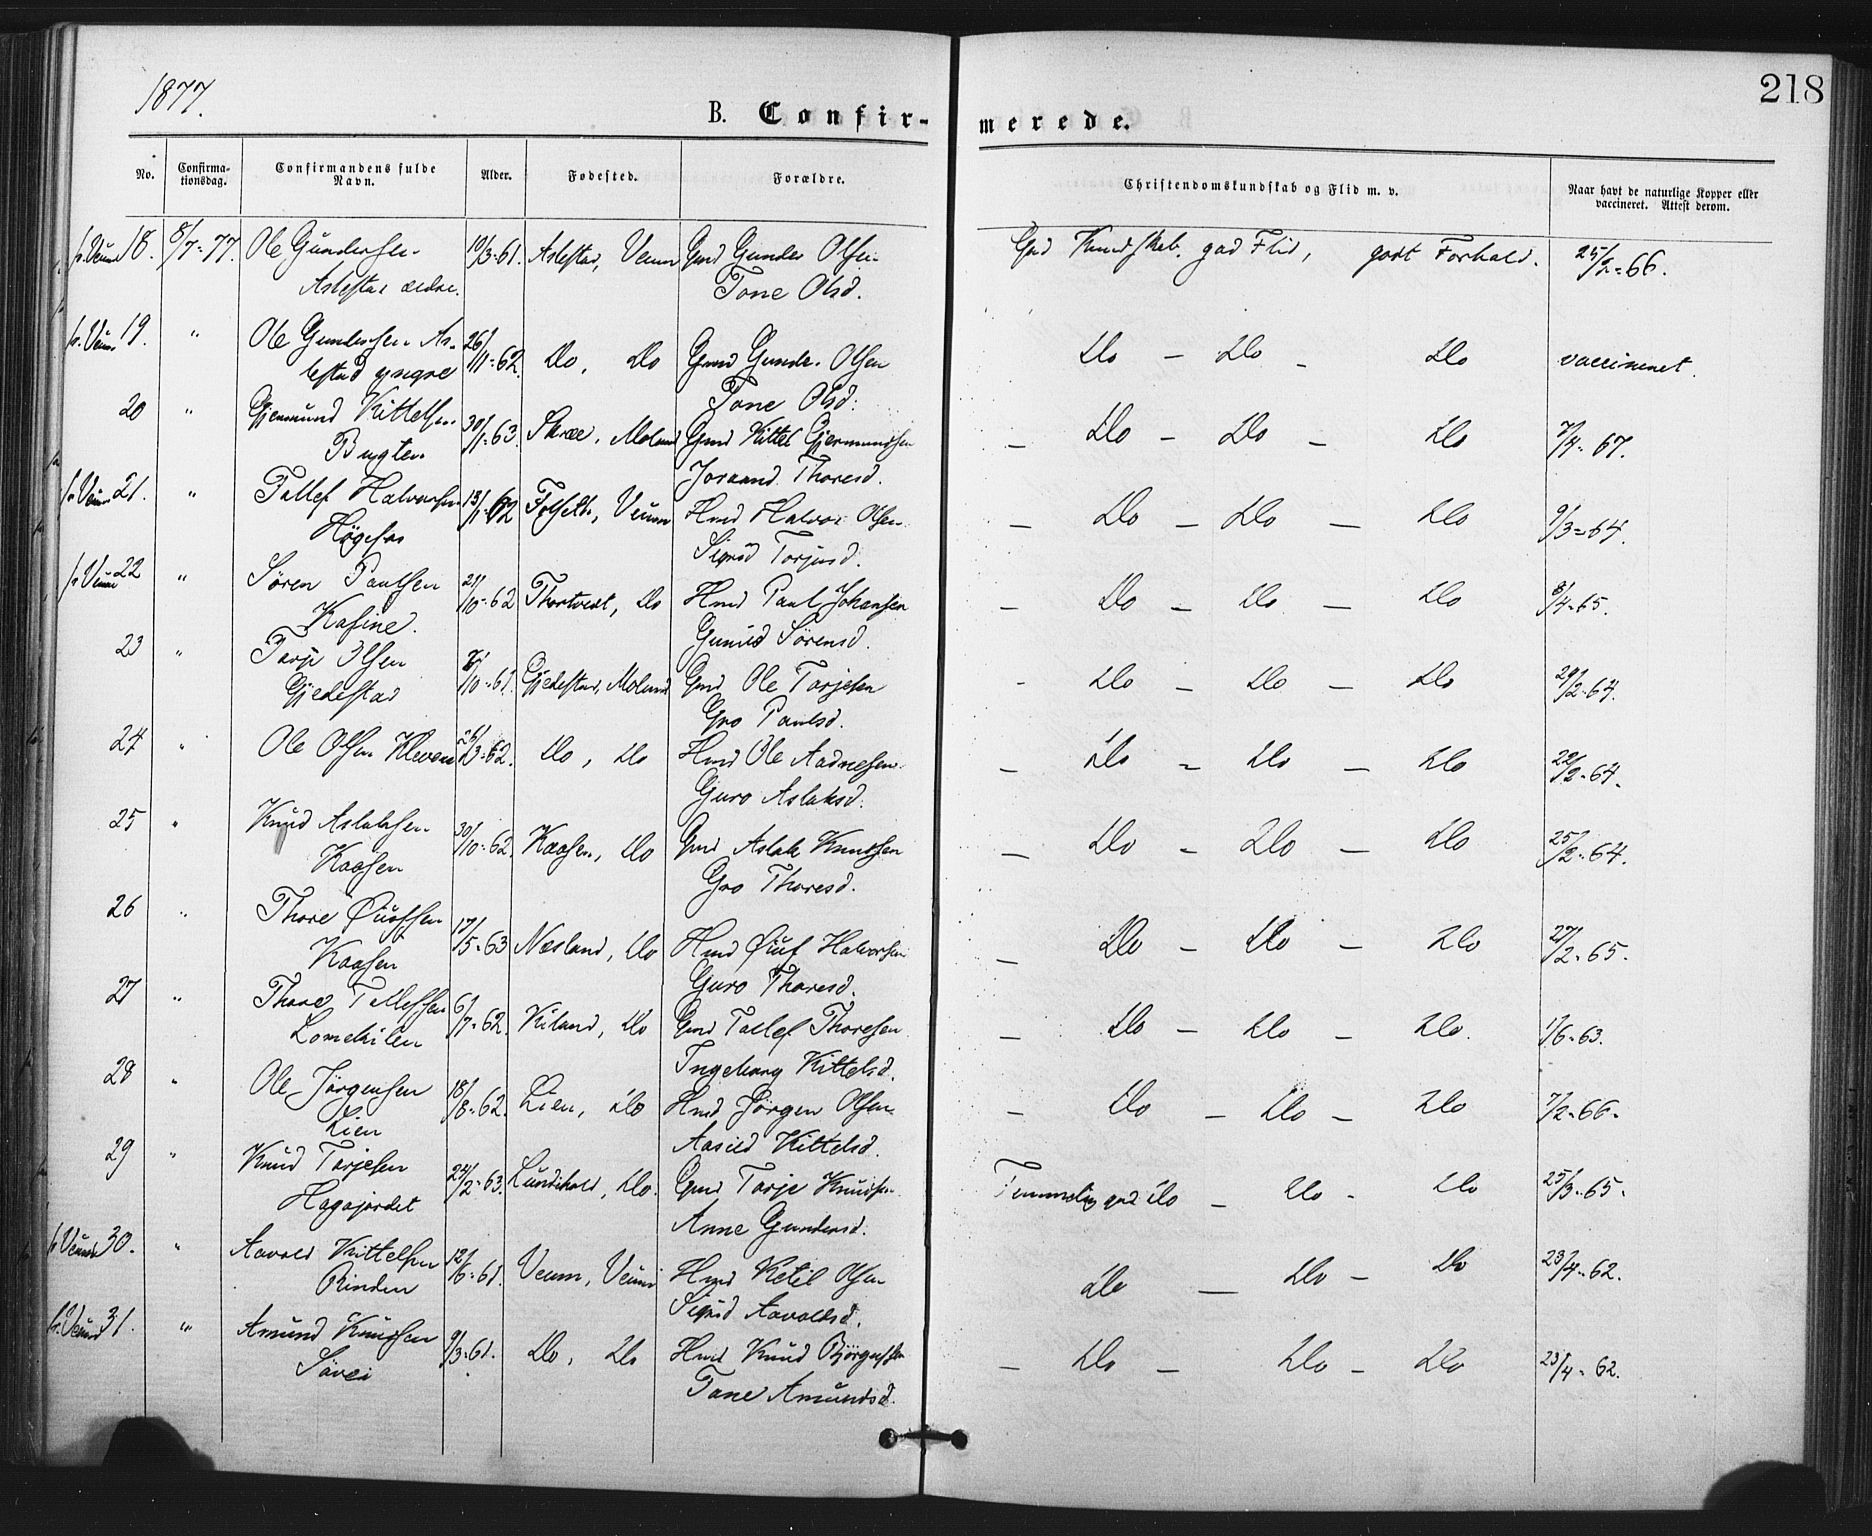 1877.
218
B. Confir- merede.
No. Confirma-tionsdag. Confirmandens fulde Navn. Alder. Fødested. Forældre. Christendomskundskab og Flid m. v. Naar havt de naturlige Kopper eller vaccineret. Attest derom.
fr. Veum 18. 8/7-77. Ole Gundersen 19/3-61. Aslestad, Veum Gmd Gunder Olsen God Kundskab, god Flid, godt Forhold. 25/2-66.
Aslestad ældre. Tone Olsd.
fr. Veum 19. " Ole Gundersen As- 26/11-62. Do, Do Gmd Gunder Olsen Do - Do - Do vaccineret.
lestad yngre Tone Olsd.
20 " Gjermund Kittelsen 30/1-63. Skree, Moland Gmd Kittel Gjermundsen - Do - Do - Do 7/4-67.
Bugten Joraand Thoresd.
fr. Veum 21. " Tallef Halvorsen 13/1-62 Veum Hmd Halvor Olsen - Do - Do - Do 9/3-64.
Høgefos Sigrid Torjusd.
fr. Veum 22 " Søren Paulsen 21/10-62 Thortvedt, Do Hmd Paul Johansen - Do - Do - Do 8/4-65.
Kasine. Gunild Sørensd.
23 " Torje Olsen 10-61. Gjedestad, Moland Gmd Ole Torjesen - Do - Do - Do 29/2-64.
Gjedestad Gro Paulsd.
24 " Ole Olsen Kleven 26/3-62. Do, Do Hmd Ole Aadnesen - Do - Do - Do 22/2-64.
Guro Aslaksd.
25 " Knud Aslaksen 30/10-62. Kaasen, Do Gmd Aslak Knudsen - Do - Do - Do 25/2-64.
Kaasen Gro Thoresd.
26 " Thore Øiufsen 17/5-63 Næsland, Do Hmd Øiuf Halvorsen - Do - Do - Do 27/2-65.
Kaasen Guro Thoresd.
27 " Thore Tallefsen 6/7-62. Kiland, Do Gmd Tallef Thoresen - Do - Do - Do. 1/6-63.
Lomekilen Ingeborg Kittelsd.
28 " Ole Jørgensen 18/8-62. Lien, Do Hmd Jørgen Olsen - Do - Do - Do 7/2-66.
Lien Aasild Kittelsd.
29 " Knud Torjesen 24/2-63. Do. Gmd Torje Knudsen Temmelig god Do - Do - Do 25/3-65.
Hagajordet Anne Gundersd.
fr. Veum 30. " Aavold Kittelsen 12/6-61. Veum, Veum Hmd Ketil Olsen Do - Do - Do 23/4-62.
Rinden Sigrid Aavoldsd.
fr. Veum 31. " Amund Knudsen 9/3-61. Do, Do Hmd Knud Bjørgufsen - Do - Do - Do 23/4-62.
Søvei Tone Amundsd.